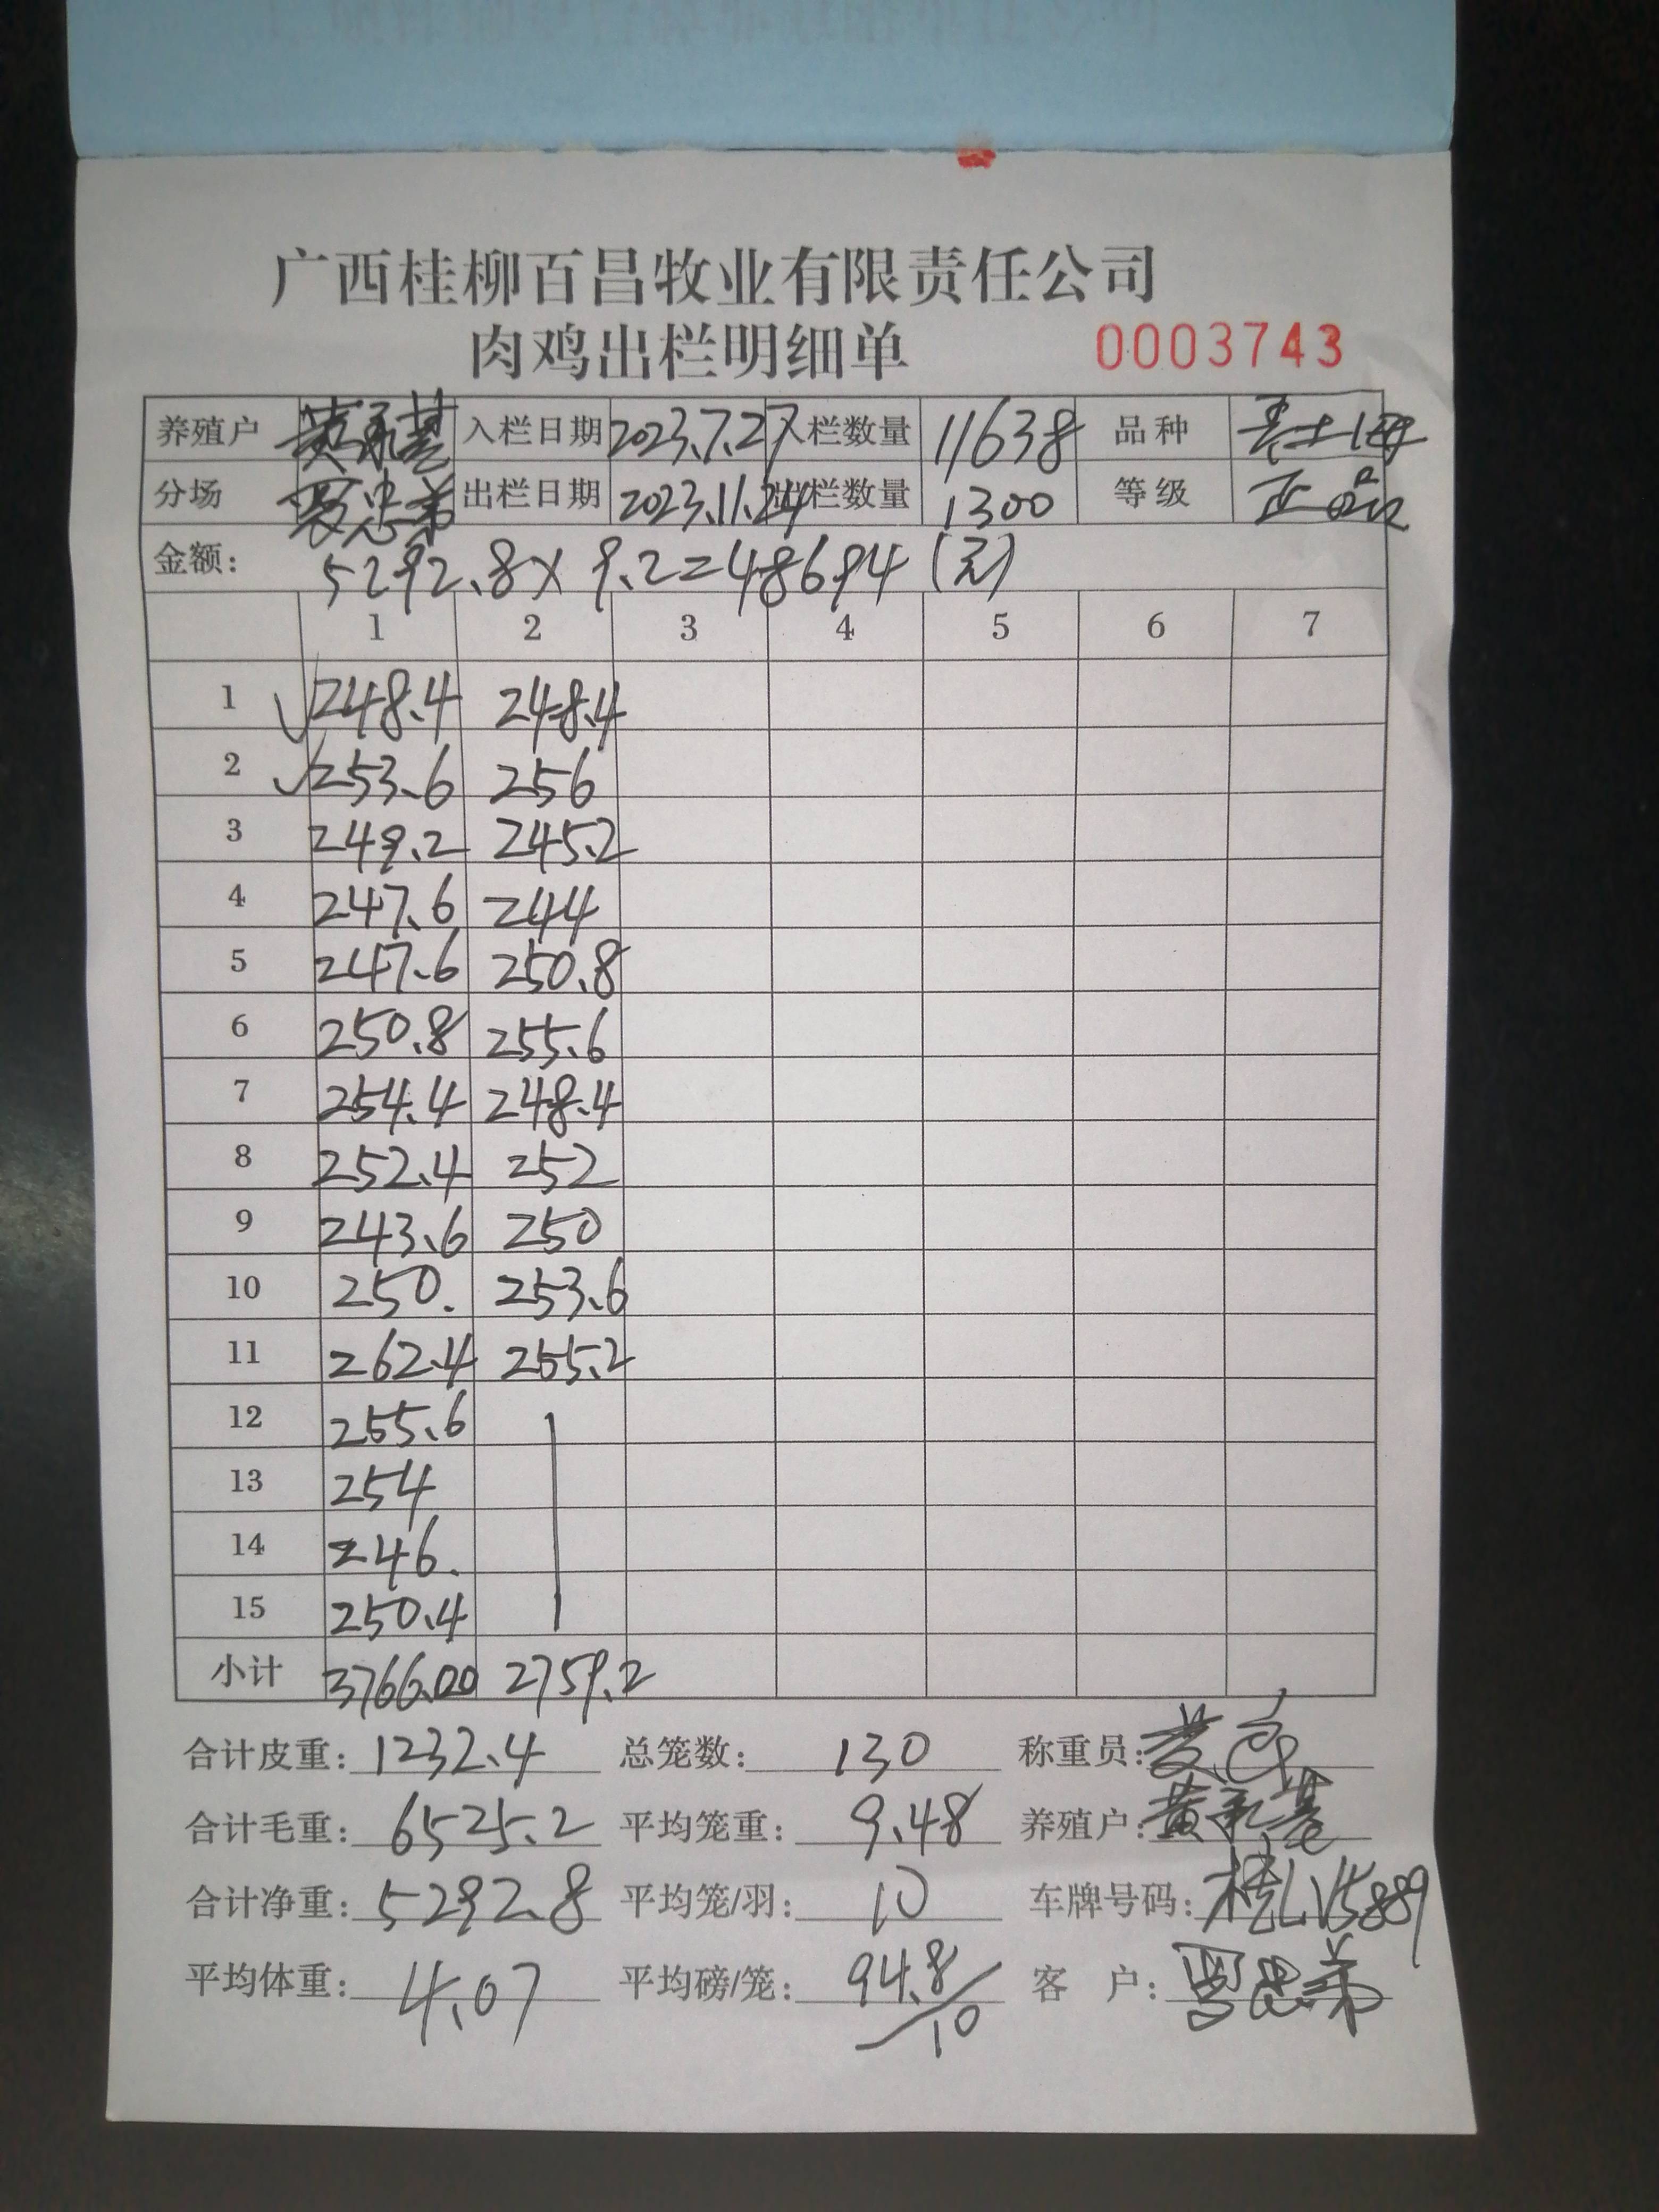 广西桂柳百昌牧业有限责任公司
肉鸡出栏明细单 0003743
养殖户 黄承基 入栏日期 2023.7.27 入栏数量 11638 品种
分场 罗忠弟 出栏日期 2023.11.24 出栏数量 1300 等级 正品
金额: 5292.8×9.2=48694(元)
1 2 3 4 5 6 7
1 √248.4 248.4
2 √253.6 256
3 249.2 245.2
4 247.6 244
5 247.6 250.8
6 250.8 255.6
7 254.4 248.4
8 252.4 252
9 243.6 250
10 250. 253.6
11 262.4 255.2
12 255.6
13 254
14 246.
15 250.4
小计 3766.00 2759.2
合计皮重: 1232.4 总笼数: 130 称重员:
合计毛重: 6525.2 平均笼重: 9.48 养殖户: 黄承基
合计净重: 5292.8 平均笼/羽: 10 车牌号码: 桂LV5889
平均体重: 4.07 平均磅/笼: 94.8/10 客 户: 罗忠弟